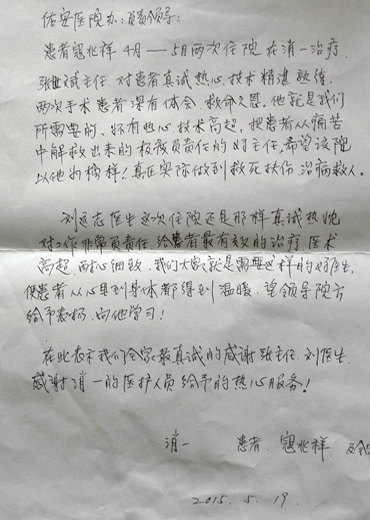 佑安医院办：员领导：
患者寇兆祥4月——5月两次住院在消一治疗
张世斌主任对患者真诚热心技术精进熟练
两次手术患者没有体会救命之恩，他就是我们
所需要的、怀有热心技术高超，把患者从痛苦
中解救出来的极负责任的好主任，希望该院
以他为榜样！真正实际做到救死扶伤治病救人。
刘远志医生这次住院还是那样真诚热忱
对工作非常负责任给患者最有效的治疗医术
高超、耐心细致、我们大家就是需要这样的好医生，
使患者从心里到身体都得到温暖，望领导院方
给予表扬，向他学习！
在此表示我们全家最真诚的感谢张主任、刘医生
感谢消一的医护人员给予的热心服务！
消一 患者、寇兆祥、及全
2015．5．19